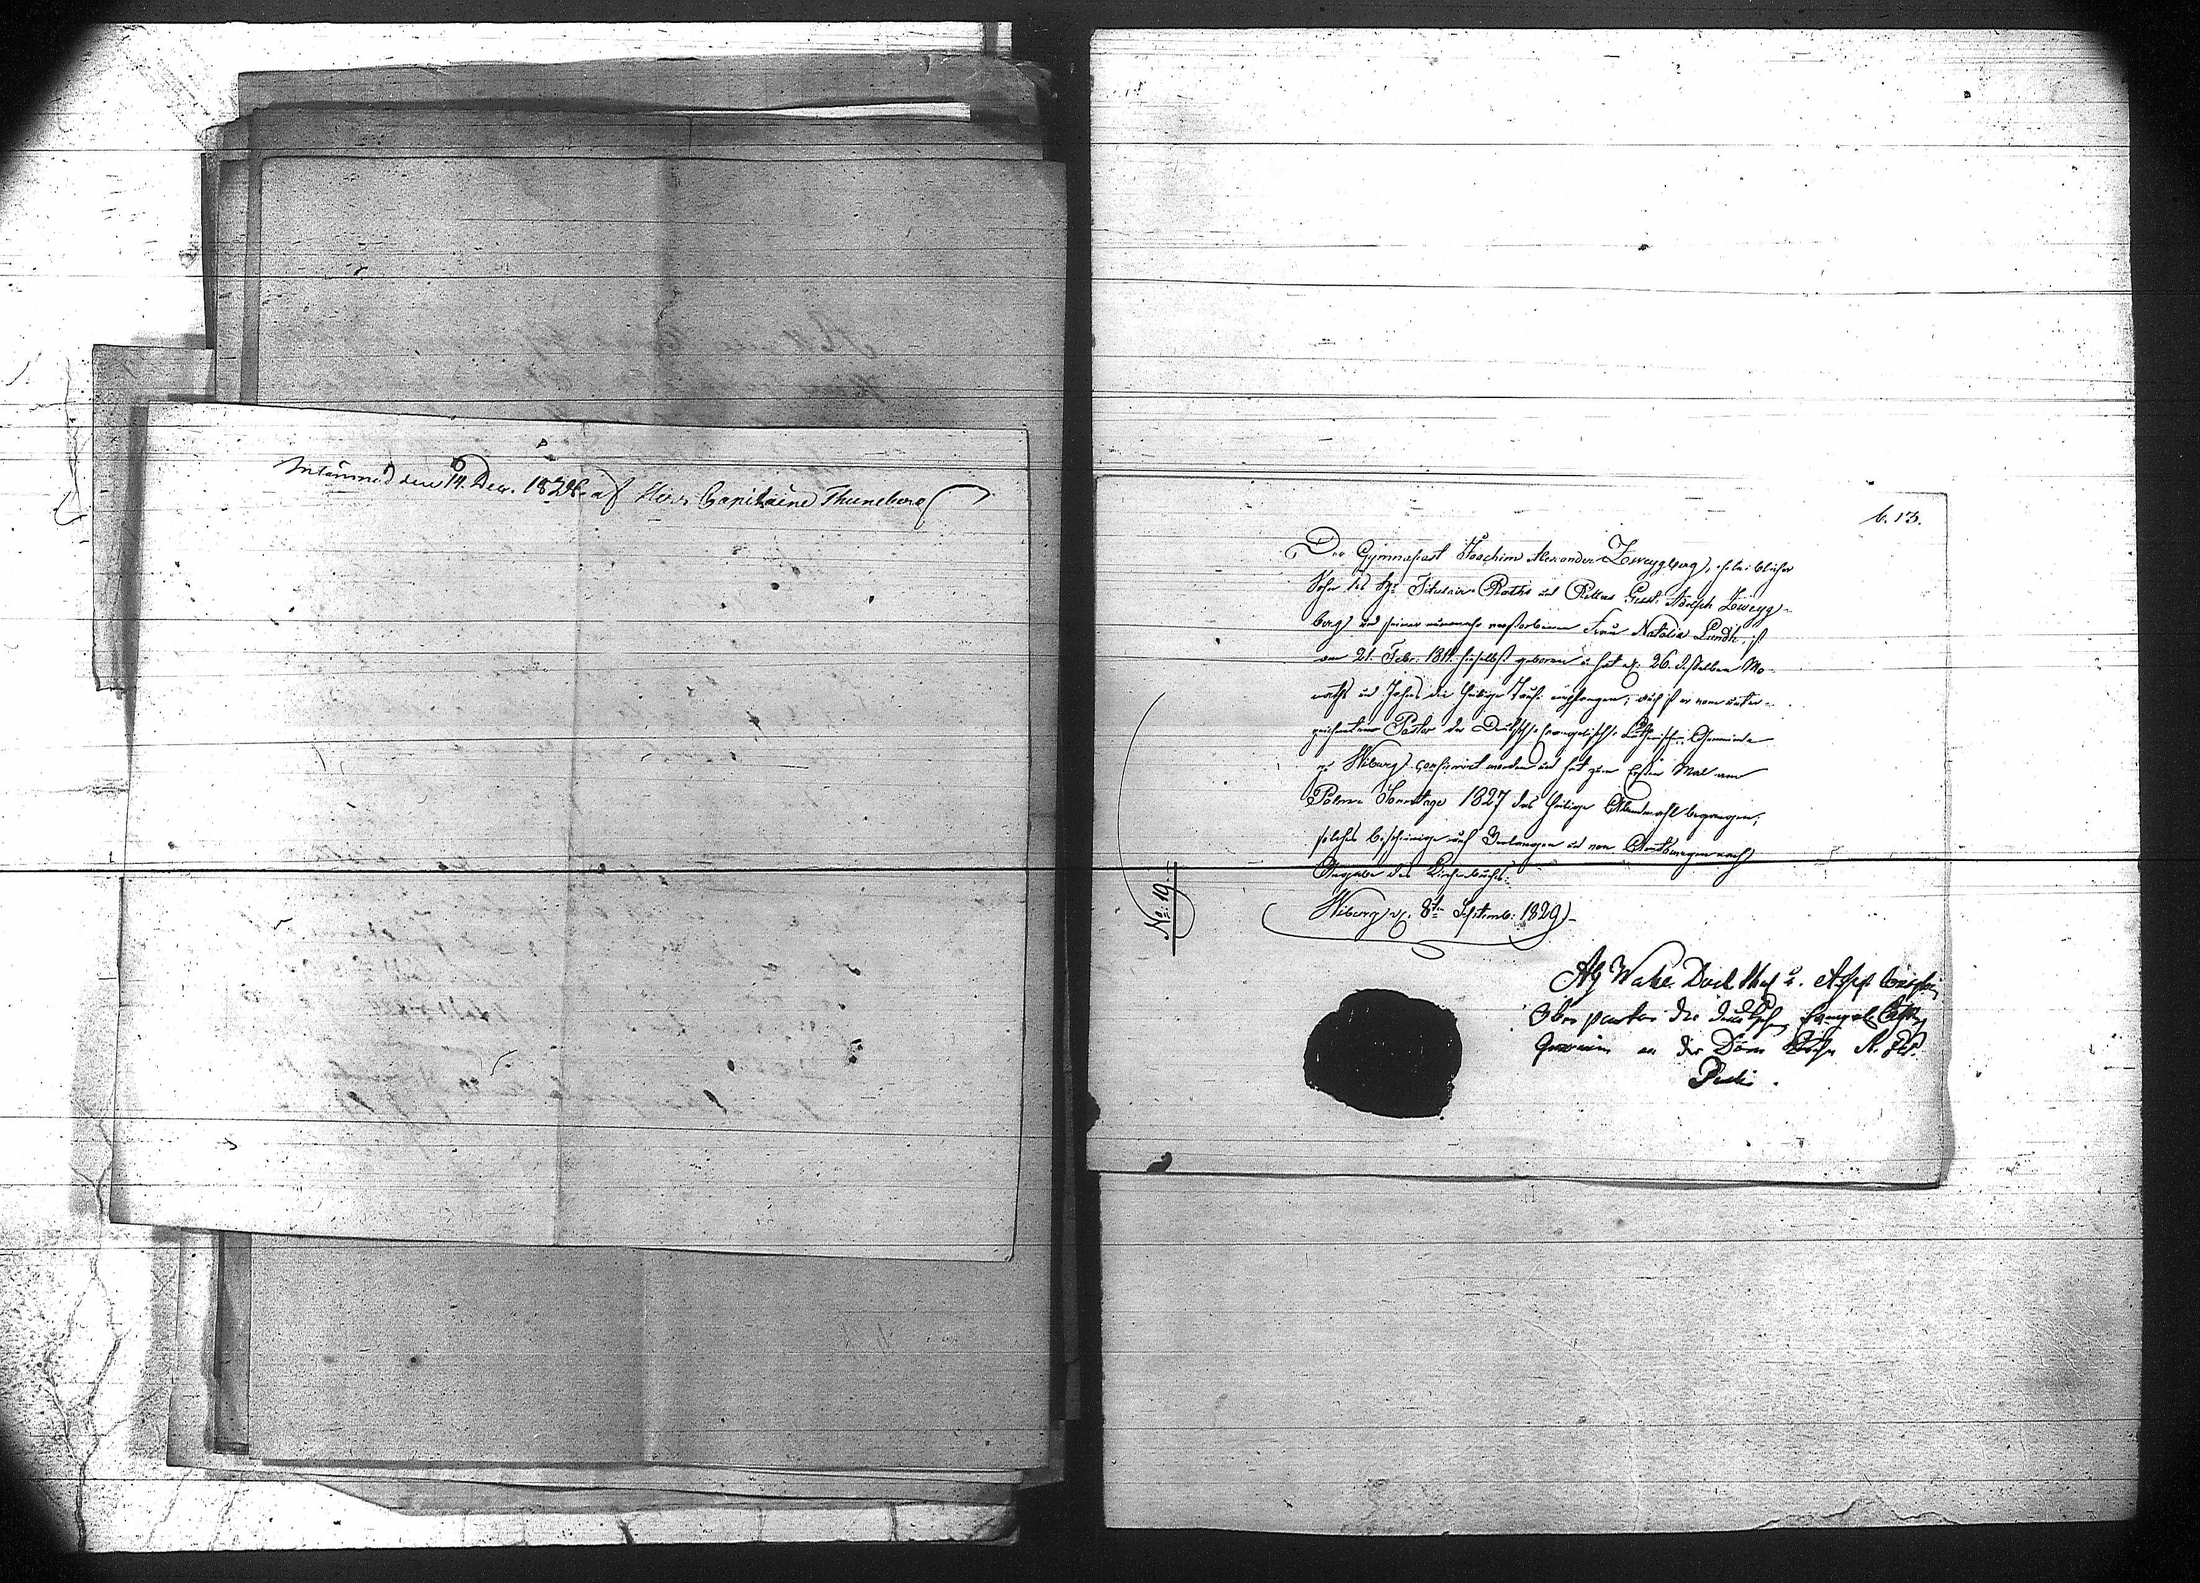 Inlämnad den 14. Dec. 1828 af Herr Capitaine Thuneberg
b. 13.
Der Gymnasiast Joachim Alexander Zweygberg, ehelicher
Sohn des Hr. Titulair-Raths und Ritters Gust. Adolph Zweyg-
berg und seiner nunmehr verstorbenen Frau Natalia Lundh, ist
am 21. Febr. 1811. hieselbst geboren u. hat d. 26. desselben Mo-
naths und Jahres die heilige Taufe empfangen; auch ist er vom unter-
zeichneten Pastor der Deutsch-Evangelisch-Lutherischen Gemeinde
zu Wiburg confirmirt worden und hat zum Ersten Mal am
Palm-Sonntage 1827 das heilige Abendmahl begangen;
solches bescheinige auf Verlangen und von Amtswegen nach
Angabe des Kirchenbuchs.
Wiburg d. 8ten Septemb: 1829.
No: 19.
Wahl. Doct.
Ober pastor der deutschen Evangel.
Gemeine an der Dom Kirche